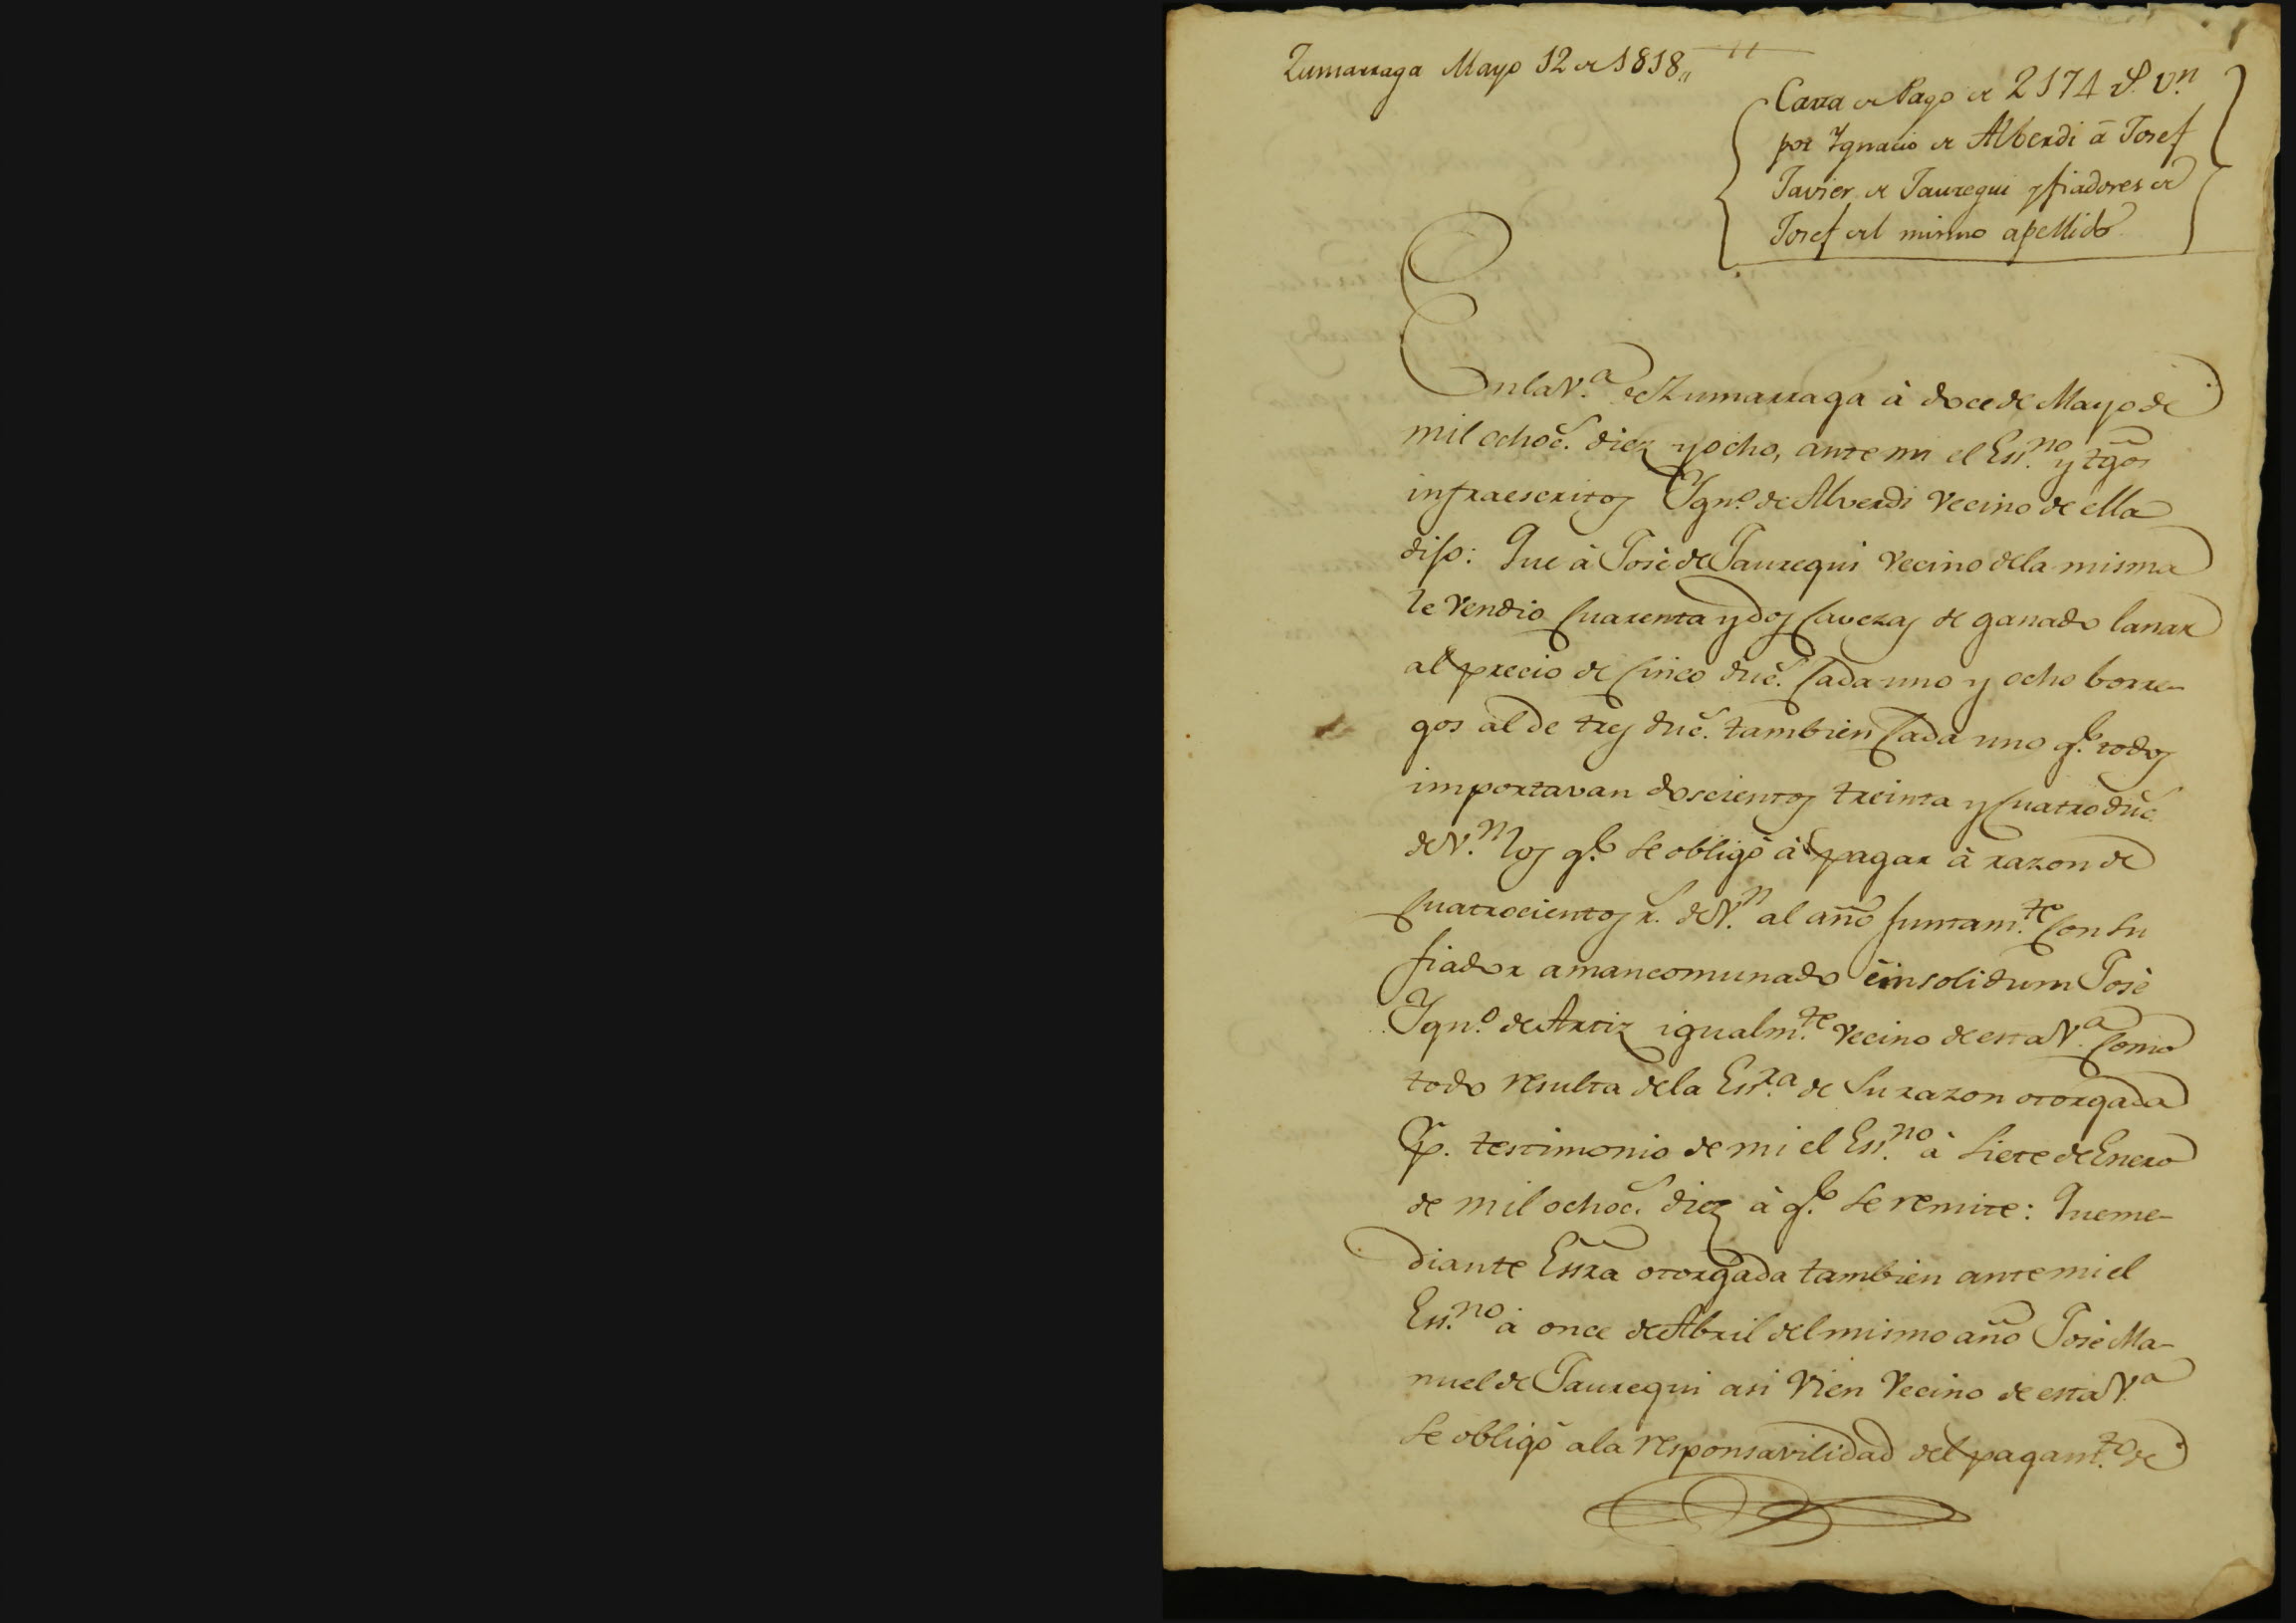 Zumarraga Mayo 12 de 1818,,
Carta de Pago de 2174 rs. v.n
por Ygnacio de Alberdi ã Josef
Javier de Jauregui y fiadores de
Josef del mismo apellido.
En la V.a de Zumarraga à doce de Mayo de
mil ochoc.s diez y ocho, ante mi el Ess.no y tgos
infraescritos Ygn.o de Alverdi Vecino de ella
dijo: Que à José de Jauregui Vecino de la misma
le Vendio Cuarenta y dos Cavezas de ganado lanar
al precio de Cinco duc.s Cada uno y ocho borre-
gos al de tres duc.s tambien Cada uno q.e todos
importavan doscientos treinta y Cuatro duc.s
de V.n los q.e se obligó à pagar à razon de
Cuatrocientos r.s de V.n al año juntam.te Con su
fiador amancomunado è insolidum José
Ygn.o de Artiz igualm.te Vecino de esta V.a Como
todo resulta de la Ess.ra de su razon otorgada
p. testimonio de mi el Ess.no à siete de Enero
de mil ochoc.s diez à q.e se remite: Que me-
diante Essra otorgada tambien ante mi el
Ess.no à once de Abril del mismo año José Ma-
nuel de Jauregui asi Vien Vecino de esta V.a
se obligó a la responsavilidad del pagam.to de